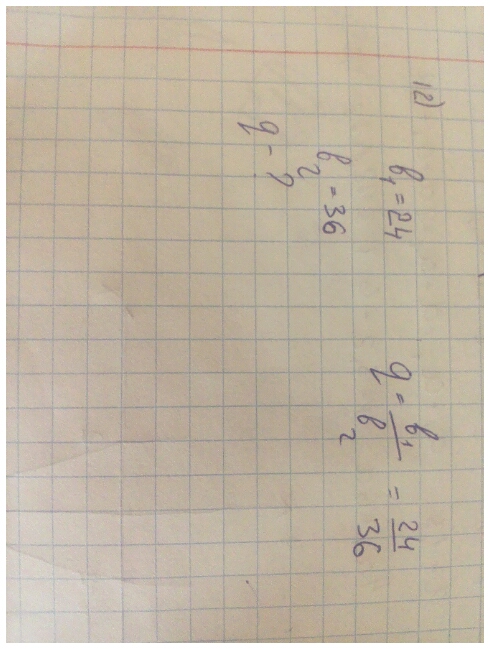 12)
b₁ = 24
b₂ = 36
q - ?
q = b₁/b₂ = 24/36